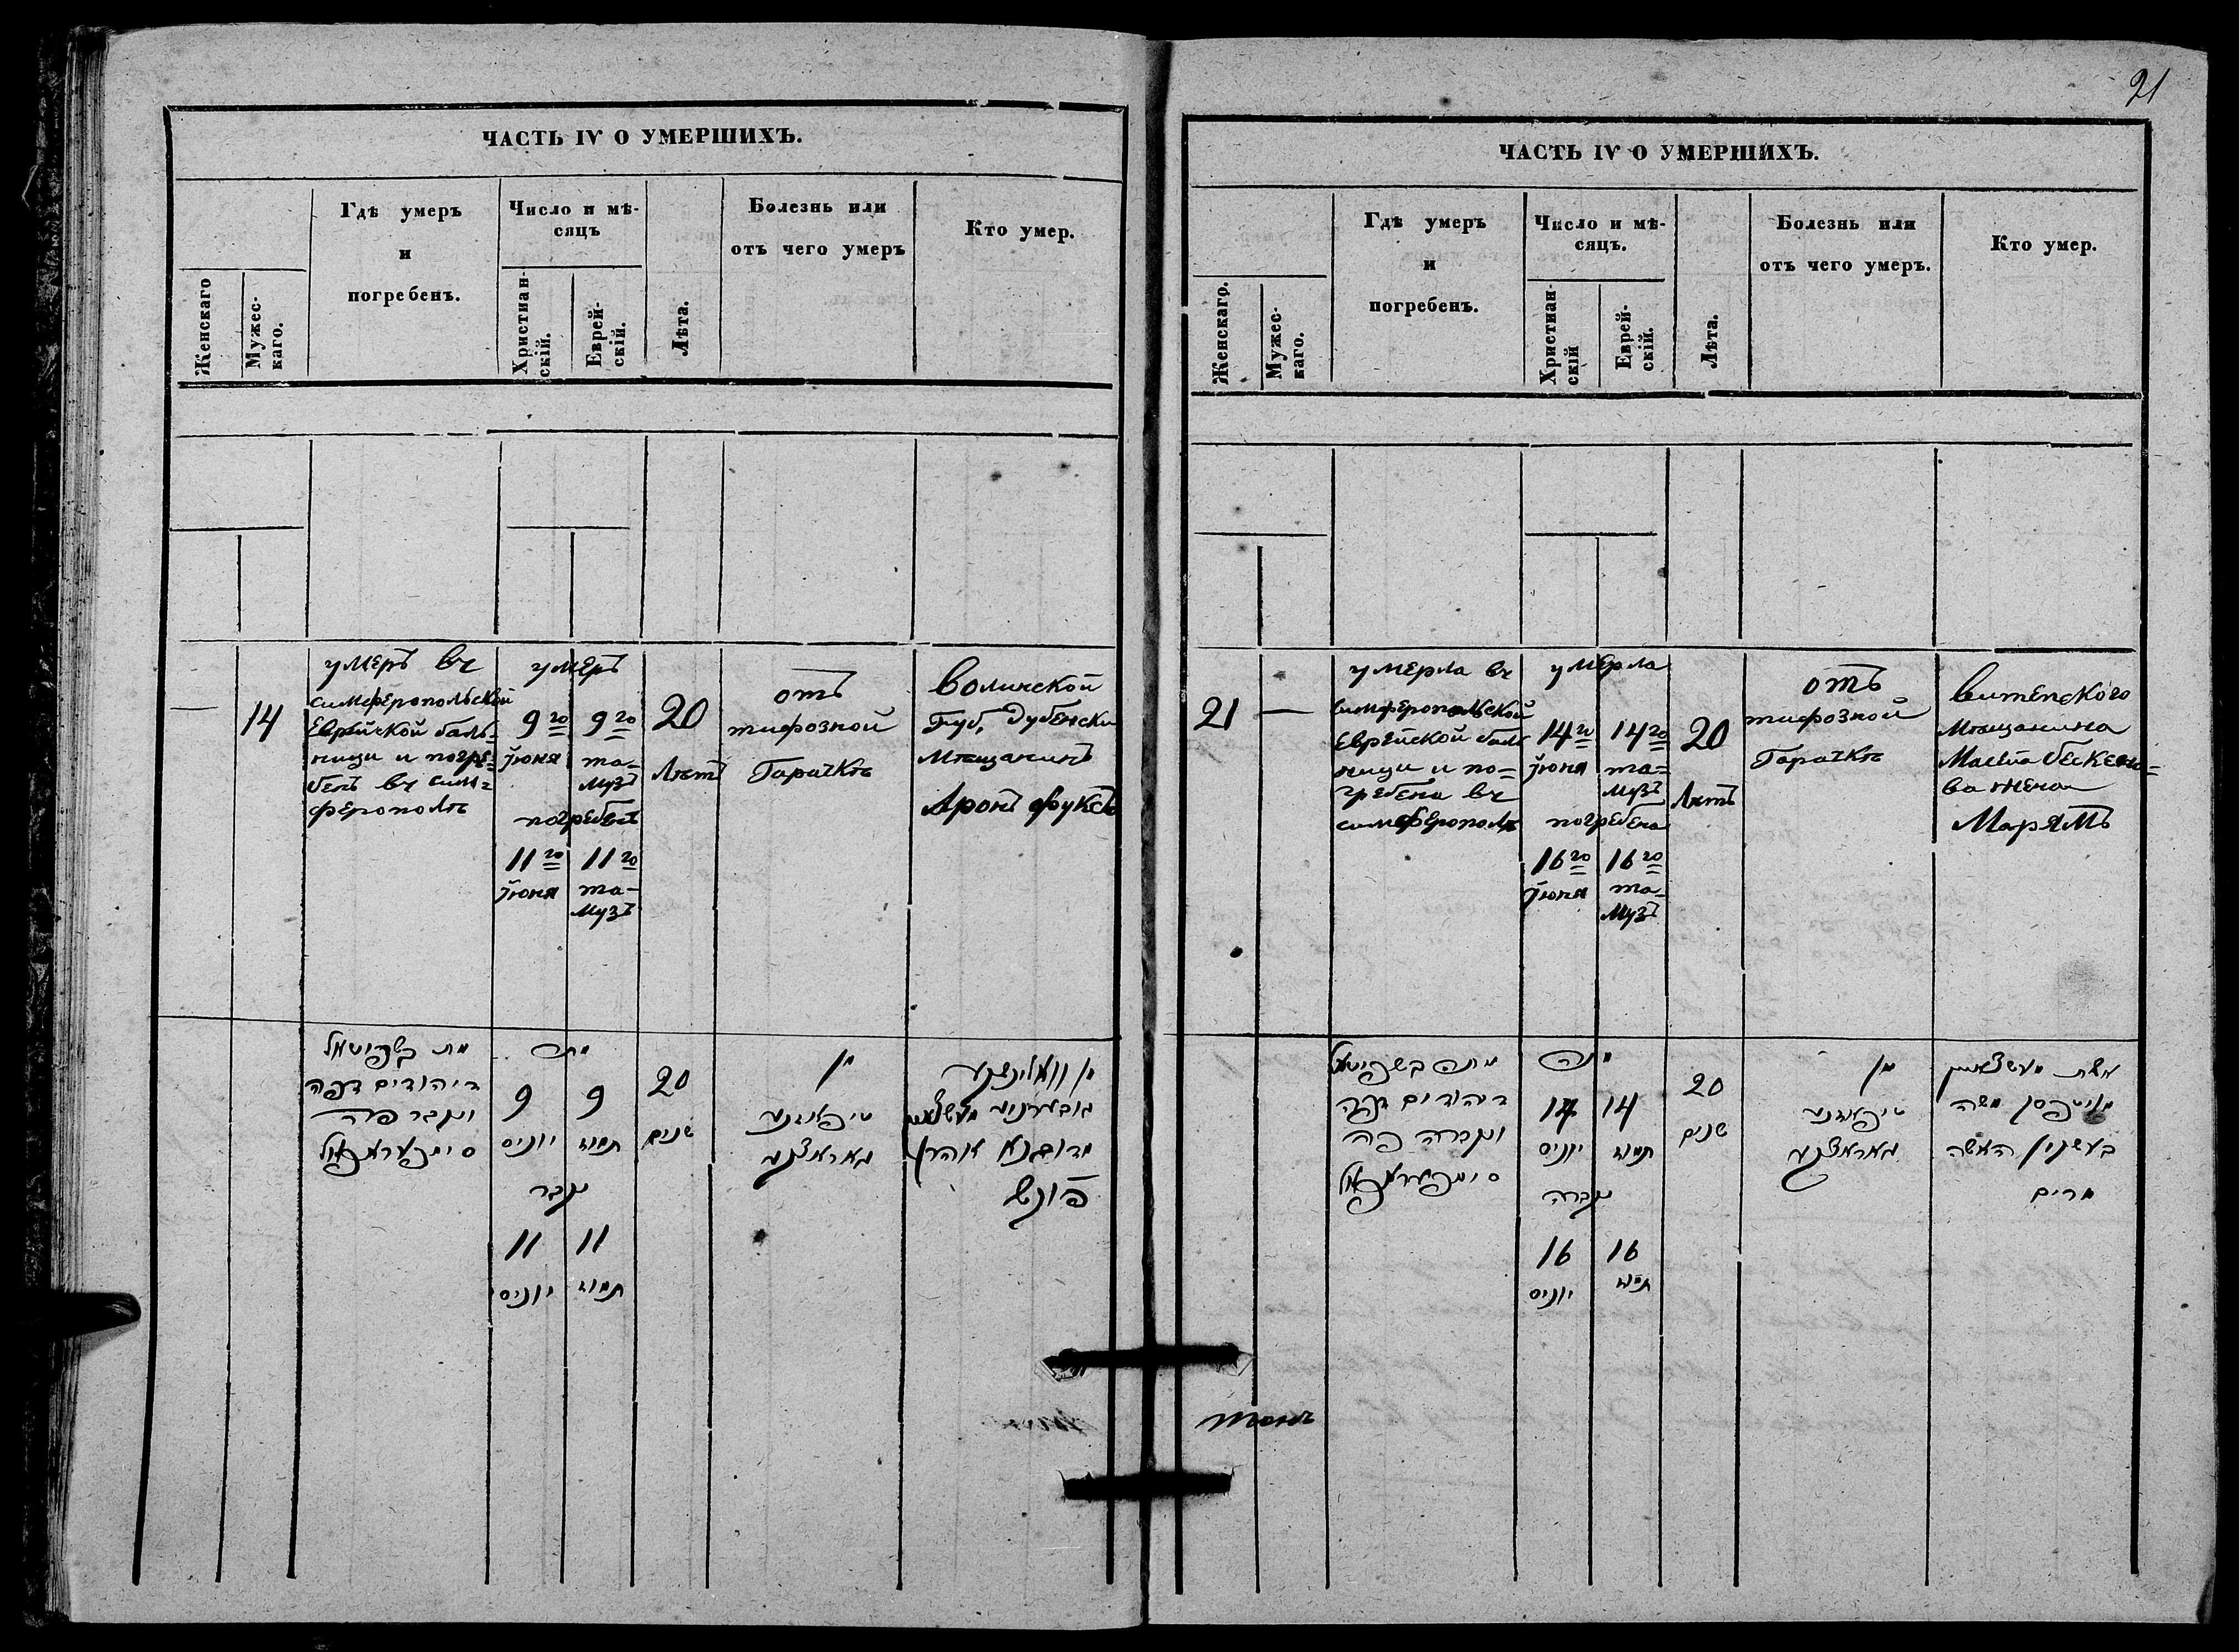 21
ЧАСТЬ IV О УМЕРШИХЪ.
Женскаго
Мужес-
каго.
Гдѣ умеръ
и
погребенъ.
Число и мѣ-
сяцъ
Христиан-
скій.
Еврей-
скій.
Лѣта.
Болезнь или
отъ чего умеръ
Кто умер.
—
14
умеръ въ
симферопольской
Еврейской баль-
ници и погре-
бенъ въ сим-
ферополѣ
умеръ
9го
9го
Іюня
та-
музъ
погребенъ
11го
11го
Іюня
та-
музъ
20
Лѣтъ
отъ
тифозной
Гарачкѣ
Волинской
Губ, Дубенски
Мѣщанинъ
Аронъ Фуксъ
מת בשפיטאל
היהודים דפה
ונקבר פה
סימפעראפאל
מת
9
9
יוניס
תמוז
נקבר
11
11
יוניס
תמוז
20
שנים
מן
טיפאזנע
גאראצקע
מן וואלינסקע
גובערניע מעשצאנין
אהרן
פוקס
ЧАСТЬ IV О УМЕРШИХЪ.
Женскаго.
Мужес-
каго.
Гдѣ умеръ
и
погребенъ.
Число и мѣ-
сяцъ.
Христиан-
скій
Еврей-
скій.
Лѣта.
Болезнь или
отъ чего умеръ.
Кто умер.
21
—
умерла въ
симферопольской
Еврейской баль
ници и по-
гребена въ
симферополѣ
умерла
14го
14го
Іюня
та-
музъ
погребена
16го
16го
Іюня
та-
музъ
20
Лѣтъ
отъ
тифозной
Гарачкѣ
Витепского
Мѣщанина
ва жена
Марямъ
מתה בשפיטאל
היהודים דפה
ונקברה פה
סימפעראפאל
מתה
14
14
יוניס
תמוז
נקברה
16
16
יוניס
תמוז
20
שנים
מן
טיפאזנע
גאראצקע
אשת מעשצאנין
משה
האשה
מרים